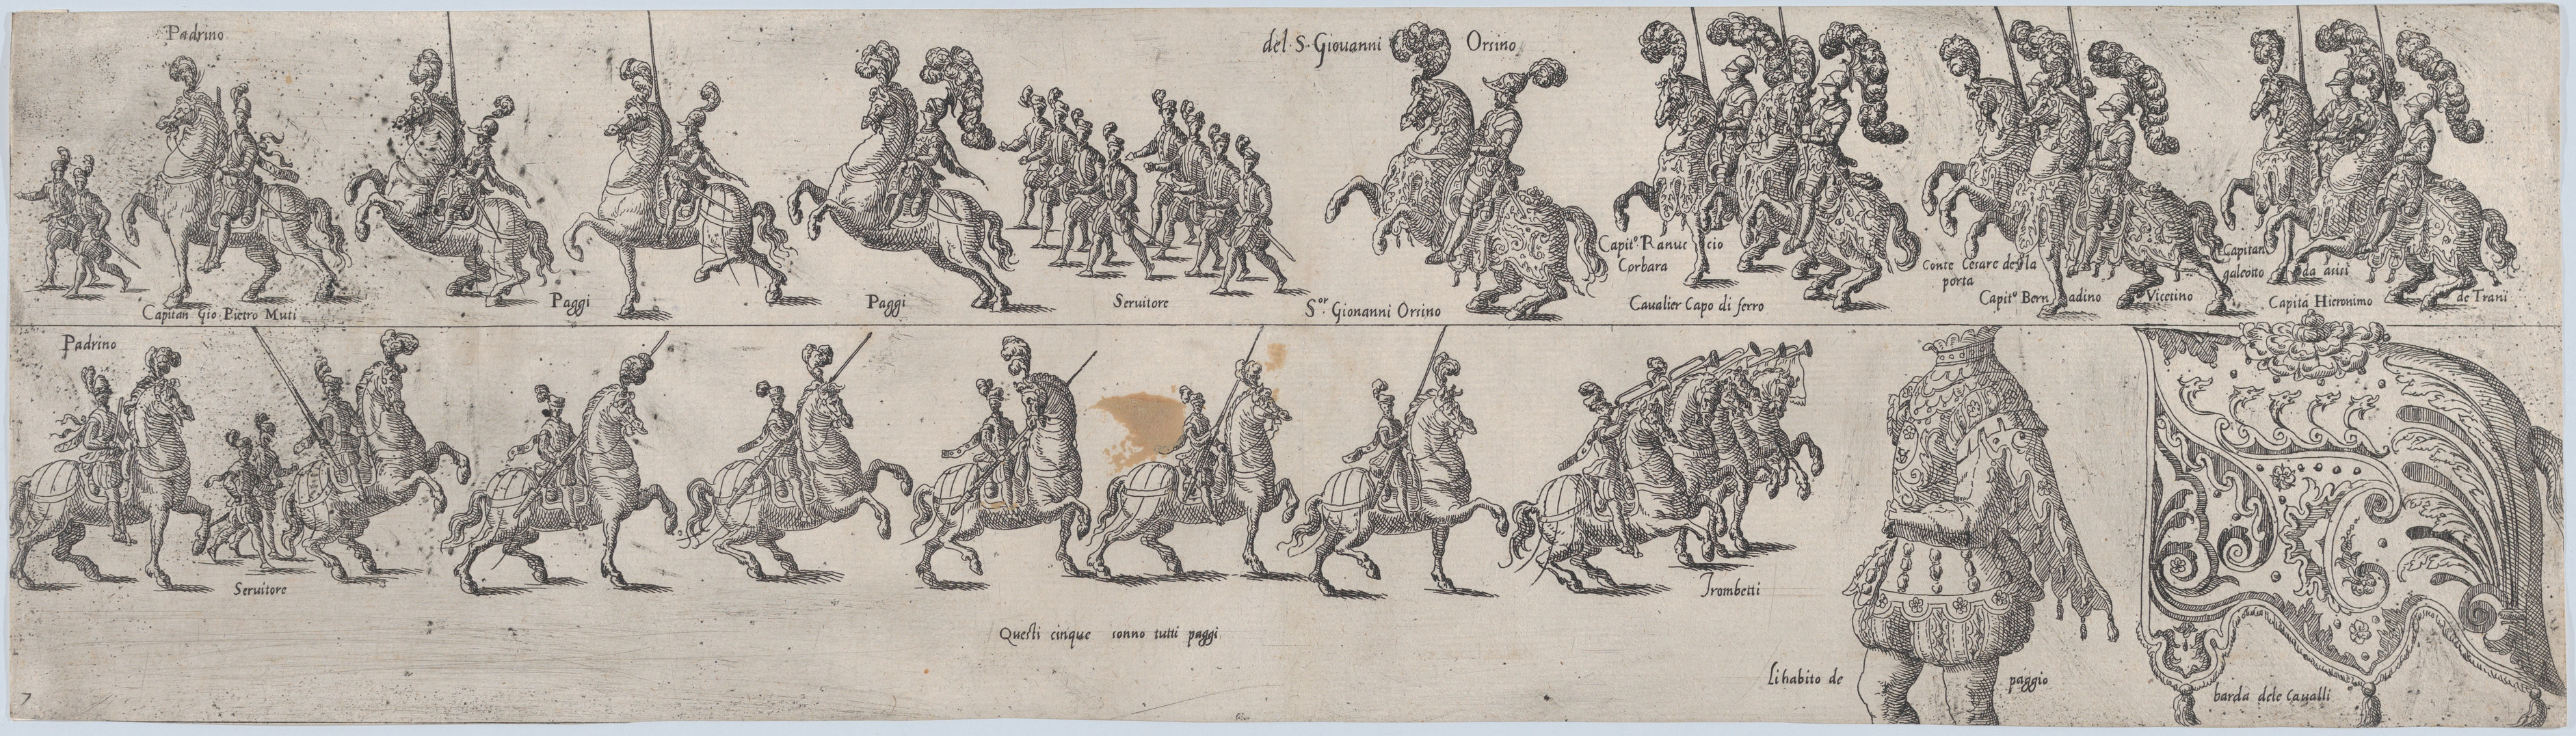 Padrino
del · S · Giouanni Orsino
Capitan Gio · Pietro Muti
Paggi
Paggi
Seruitore
S.or Gionanni Orsino
Capit.o Ranuc cio
Corbara
Caualier Capo di ferro
Conte Cesare della
porta
Capit.o Bern adino Vicetino
Capitan
galeotto da asisi
Capitá Hieronimo de Trani
Padrino
Seruitore
Questi cinque sonno tutti paggi
Trombetti
Lihabito de paggio
barda dele Caualli
7